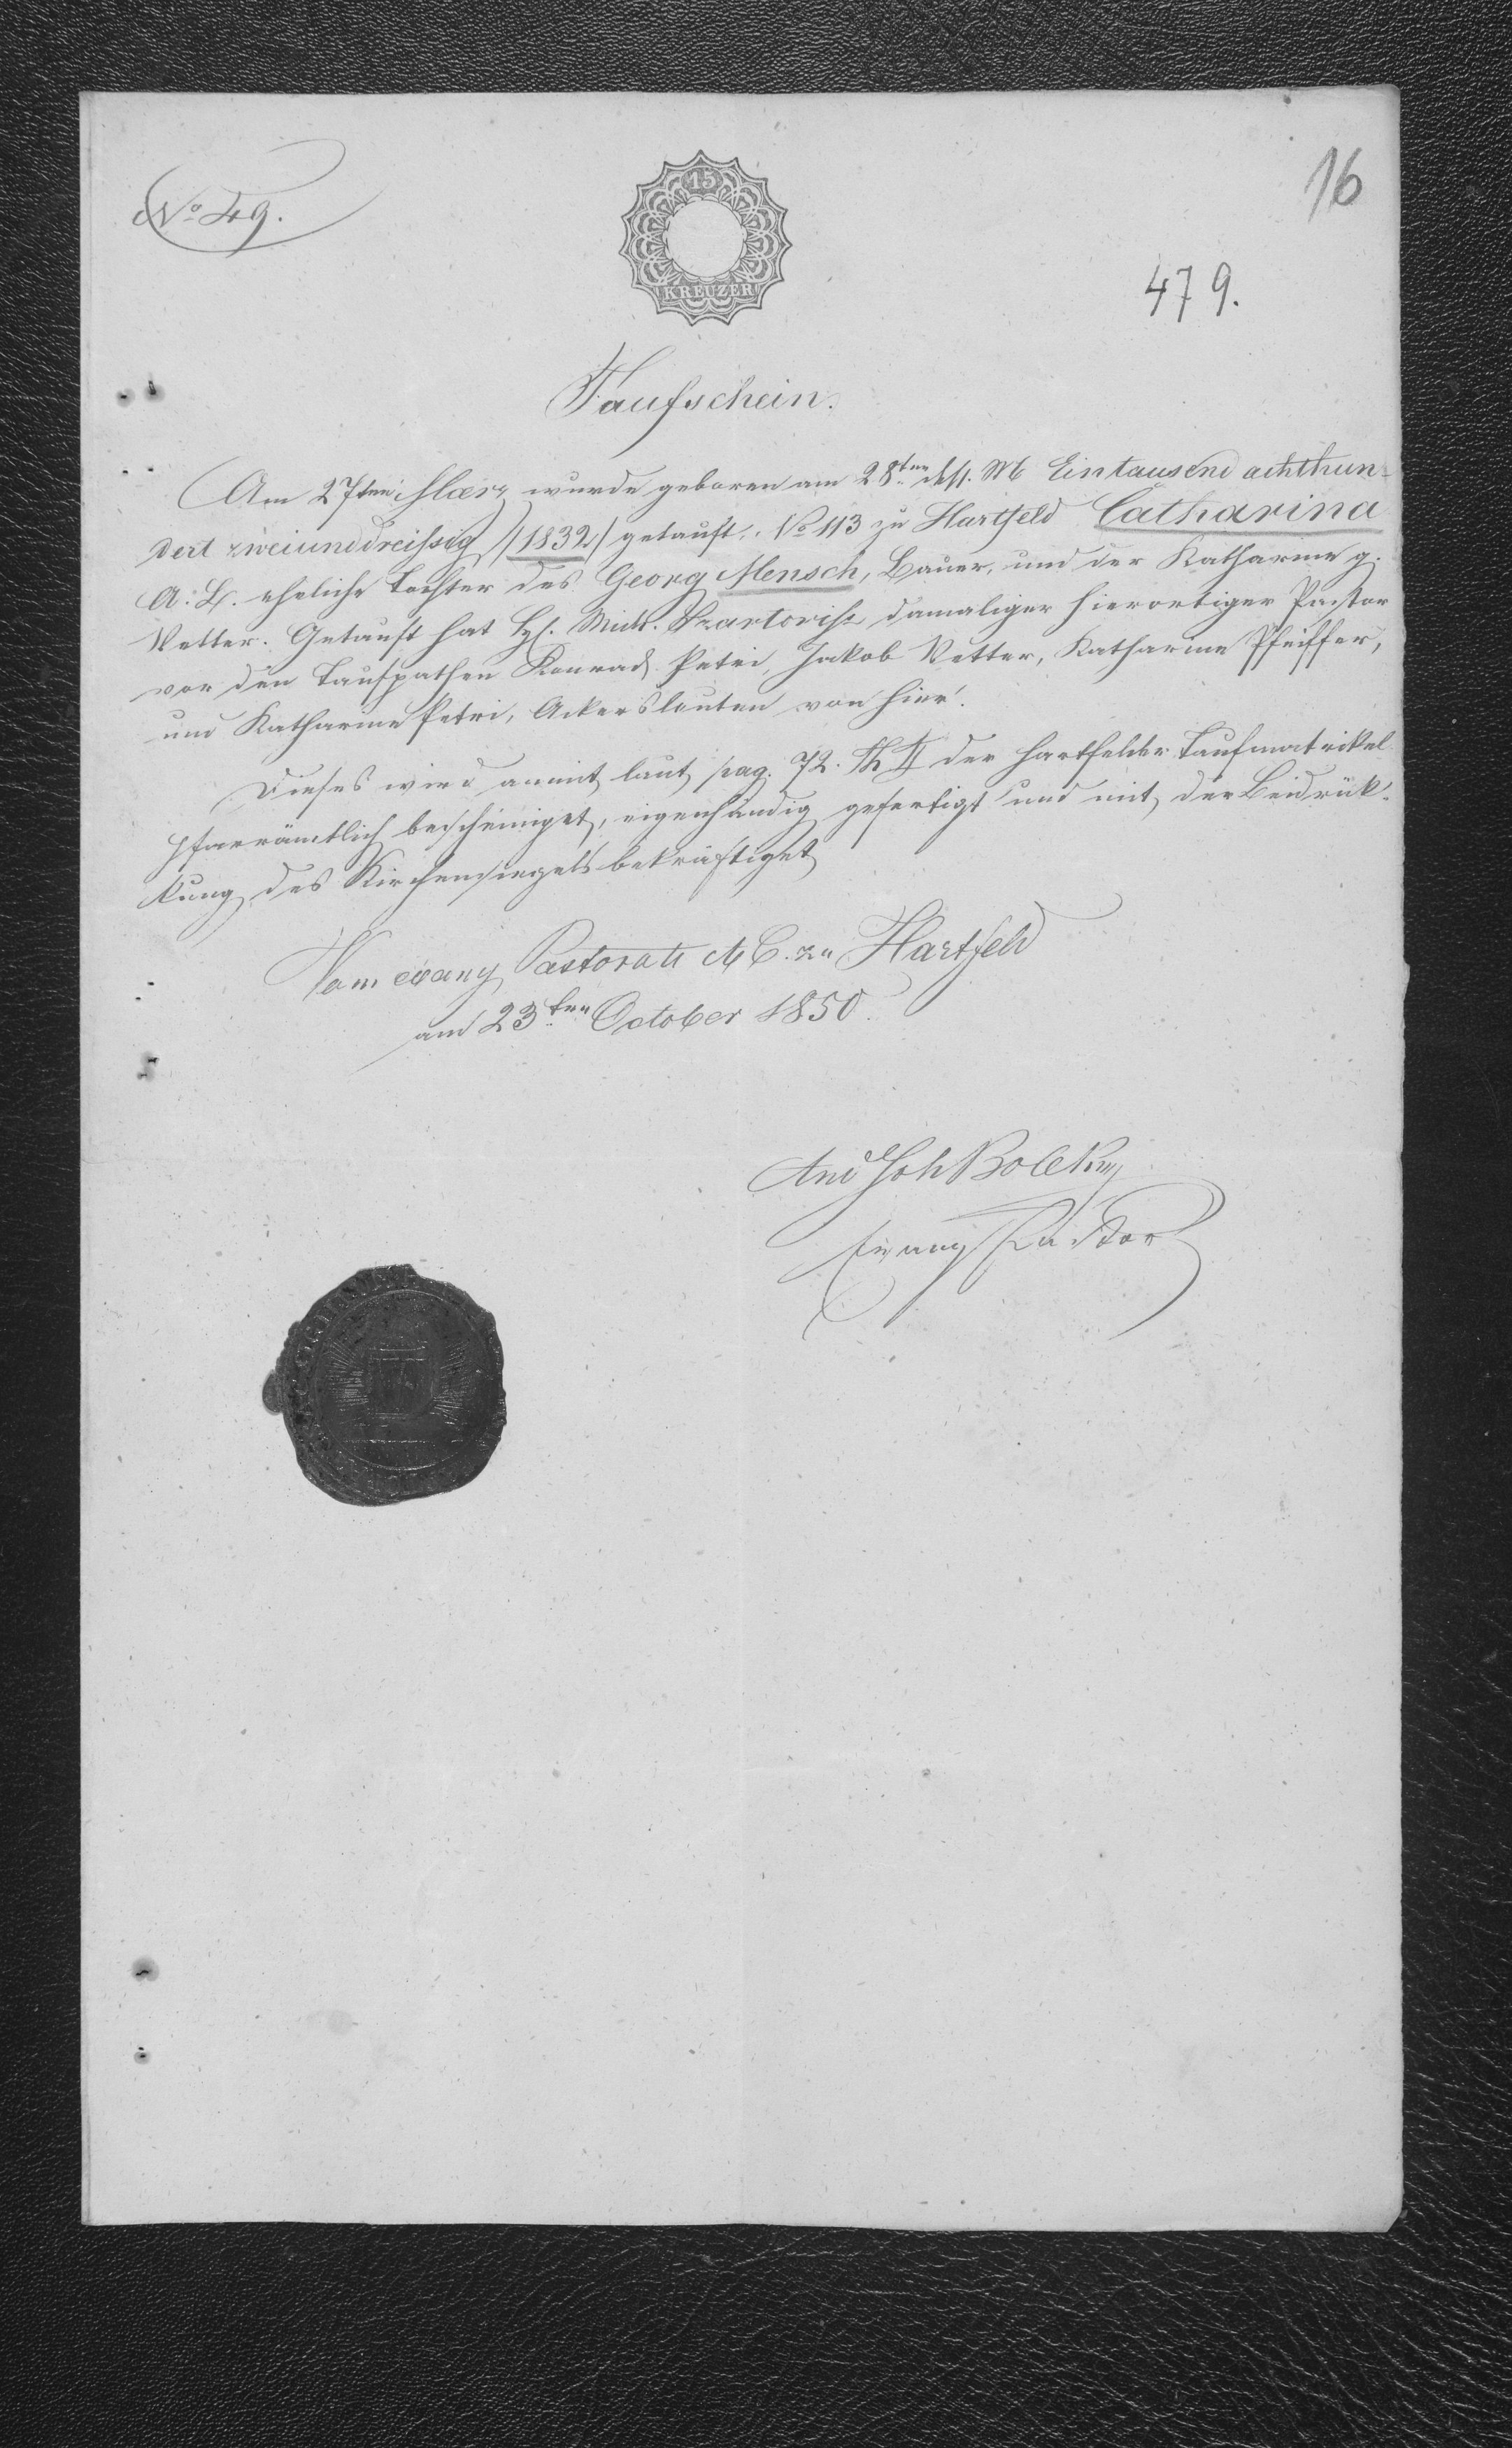 No 49.
16
15
KREUZER
479.
Taufschein.
Am 27ten Maerz wurde geboren am 28ten dss. M Eintausend achthun-
dert zweiunddreissig /1832/ getauft. No 113 zu Hartfeld Catharina
A. B. eheliche Tochter des Georg Mensch, Bauer, und der Katharine g.
Vetter. Getauft hat H. Mich. Szartorisz damaliger hierortiger Pastor
vor den Taufpathen Konrad Petri, Jakob Vetter, Katharine Pfeiffer,
und Katharine Petri, Ackersleuten von hier.
Dieses wird anmit laut pag. 72. Th II der Hartfelder Taufmatrikel
pfarrämtlich bescheiniget, eigenhändig gefertigt und mit der Beidrük-
kung des Kirchensiegels bekräftiget
Vom evang Pastorate A C. zu Hartfeld
am 23ten October 1850.
And Joh Bolek
Evang Pastor